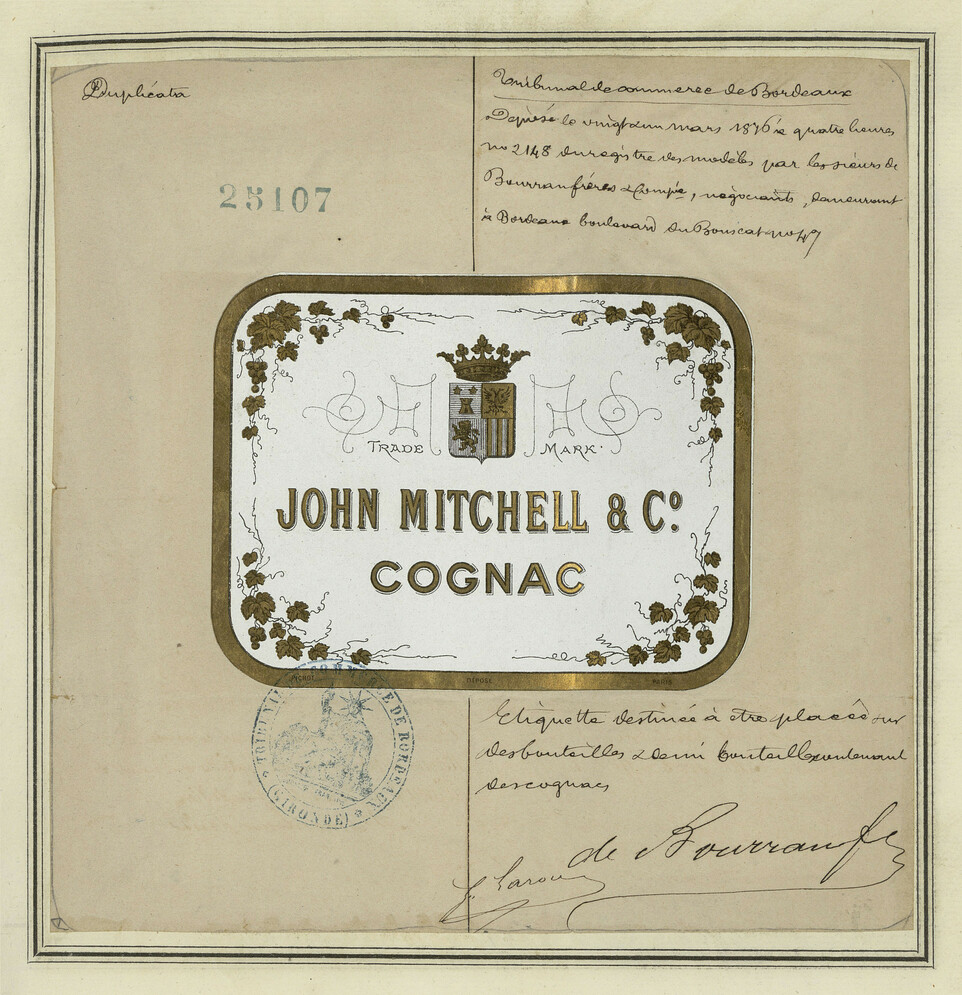 Duplicata
25107
Tribunal de commerce de Bordeaux
Déposé le vingt un mars 1876 à quatre heures
no 2148 du registre des modèles par les sieurs de
Bourran frères & Compie, négociants, demeurant
à Bordeaux boulevard du Bouscat no 49
TRADE MARK
JOHN MITCHELL & Co.
COGNAC
DÉPOSÉ PARIS
TRIBUNAL DE COMMERCE DE BORDEAUX
(GIRONDE)
Etiquette destinée à être placée sur
des bouteilles & demi bouteilles contenant
des cognacs
de Bourran f